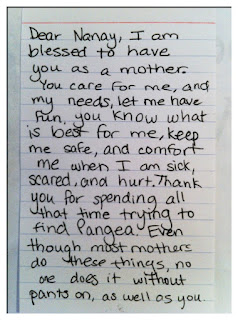 Dear Nanay, I am
blessed to have
you as a mother.
You care for me, and
my needs, let me have
fun, you know what
is best for me, keep
me safe, and comfort
me when I am sick,
scared, and hurt. Thank
you for spending all
that time trying to
find Pangea. Even
though most mothers
do these things, no
one does it without
pants on, as well as you.